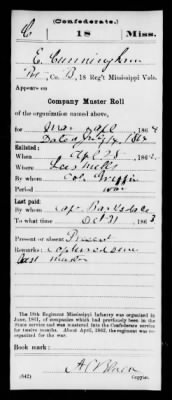 (Confederate.)
C 18 Miss.
E. Cunningham
Pvt, Co. B, 18 Reg't Mississippi Vols.
Appears on
Company Muster Roll
of the organization named above,
for Mar & Apl, 1864
Enlisted:
When Apl 28, 1862.
Where
By whom Col. Griffin
Period war
Last paid:
By whom Cap. Barksdale
To what time Oct 31, 1863
Present or absent Present
Remarks: captured since
last muster
The 18th Regiment Mississippi Infantry was organized in
June, 1861, of companies which had previously been in the
State service and was mustered into the Confederate service
for twelve months. About April, 1862, the regiment was re-
organized for the war.
Book mark:
(642) Copyist.